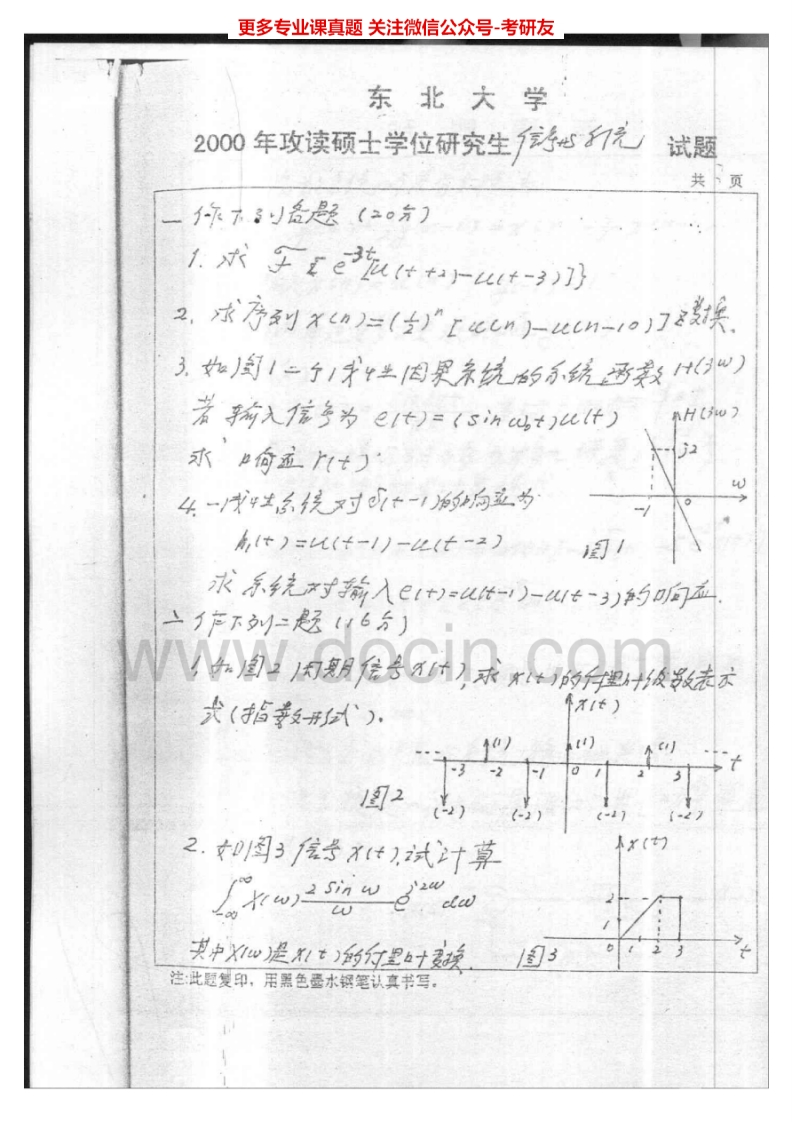 更多专业课真题 关注微信公众号-考研友
东 北 大 学
2000 年攻读硕士学位研究生 信号与系统 试题
共 页
一 作下列各题（20分）
1. 求 F{e^{-3t}[u(t+2)-u(t-3)]}
2. 求序列 x(n)=(1/2)^n [u(n)-u(n-10)] z变换.
3. 如图1一个线性因果系统的系统函数 H(jω)
若输入信号为 e(t)=(sin ω₀t)u(t)
求 响应 r(t).
H(jω)
j2
ω
-1 0
图1
4. 一线性系统对δ(t-1)的响应为
h₁(t)=u(t-1)-u(t-2)
求系统对输入e(t)=u(t-1)-u(t-3)的响应.
二 作下列二题（16分）
www.docin.com
1. 如图2周期信号x(t),求x(t)的付里叶级数表示
式(指数形式).
x(t)
(1) (1) (1)
-3 -2 -1 0 1 2 3 t
(-2) (-2) (-2) (-2)
图2
2. 如图3信号x(t),试计算
∫_{-∞}^{∞} X(ω) (2 sin ω)/ω e^{j2ω} dω
其中X(ω)是x(t)的付里叶变换.
x(t)
2
1
0 1 2 3 t
图3
注:此题复印，用黑色墨水钢笔认真书写。